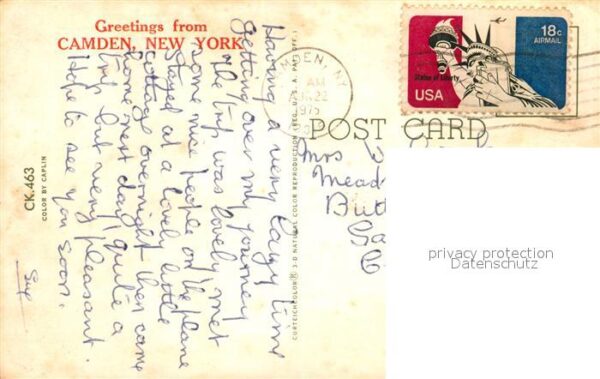 Greetings from
CAMDEN, NEW YORK
Having a very lazy time
getting over my journey
the trip was lovely met
some nice people on the plane
stayed at a lovely little
cottage overnight then came
home next day, quite a
trip but very pleasant.
Hope to see you soon.
Sue
CK.463
COLOR BY CAPLIN
CURTEICHCOLOR® 3-D NATURAL COLOR REPRODUCTION (REG. U.S.A. PAT. OFF.)
MDEN, NY
AM
22
1975
18c
AIRMAIL
Statue of Liberty
USA
POST CARD
Mrs
Mead
But
privacy protection
Datenschutz